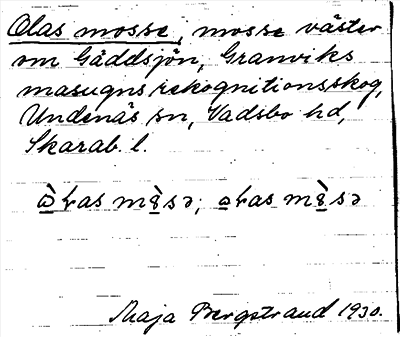 Olas mosse, mosse väster
om Gäddsjön, Granviks
masugns rekognitionsskog,
Undenäs sn, Vadsbo hd,
Skarab. l.
Maja Bergstrand 1930.